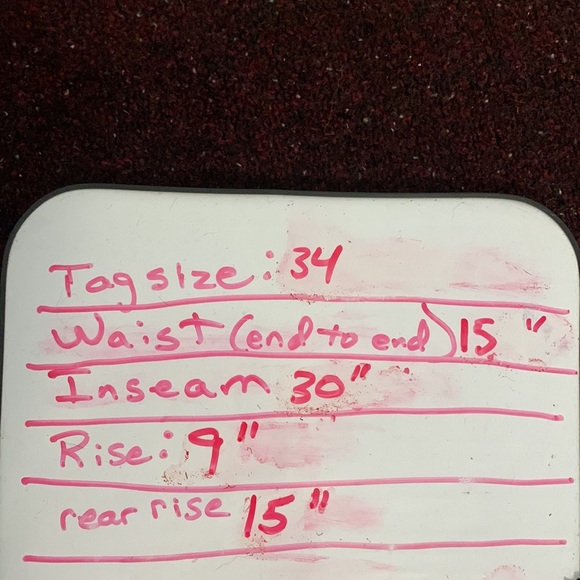 Tag size: 34
Waist (end to end) 15 "
Inseam 30"
Rise: 9"
rear rise 15"